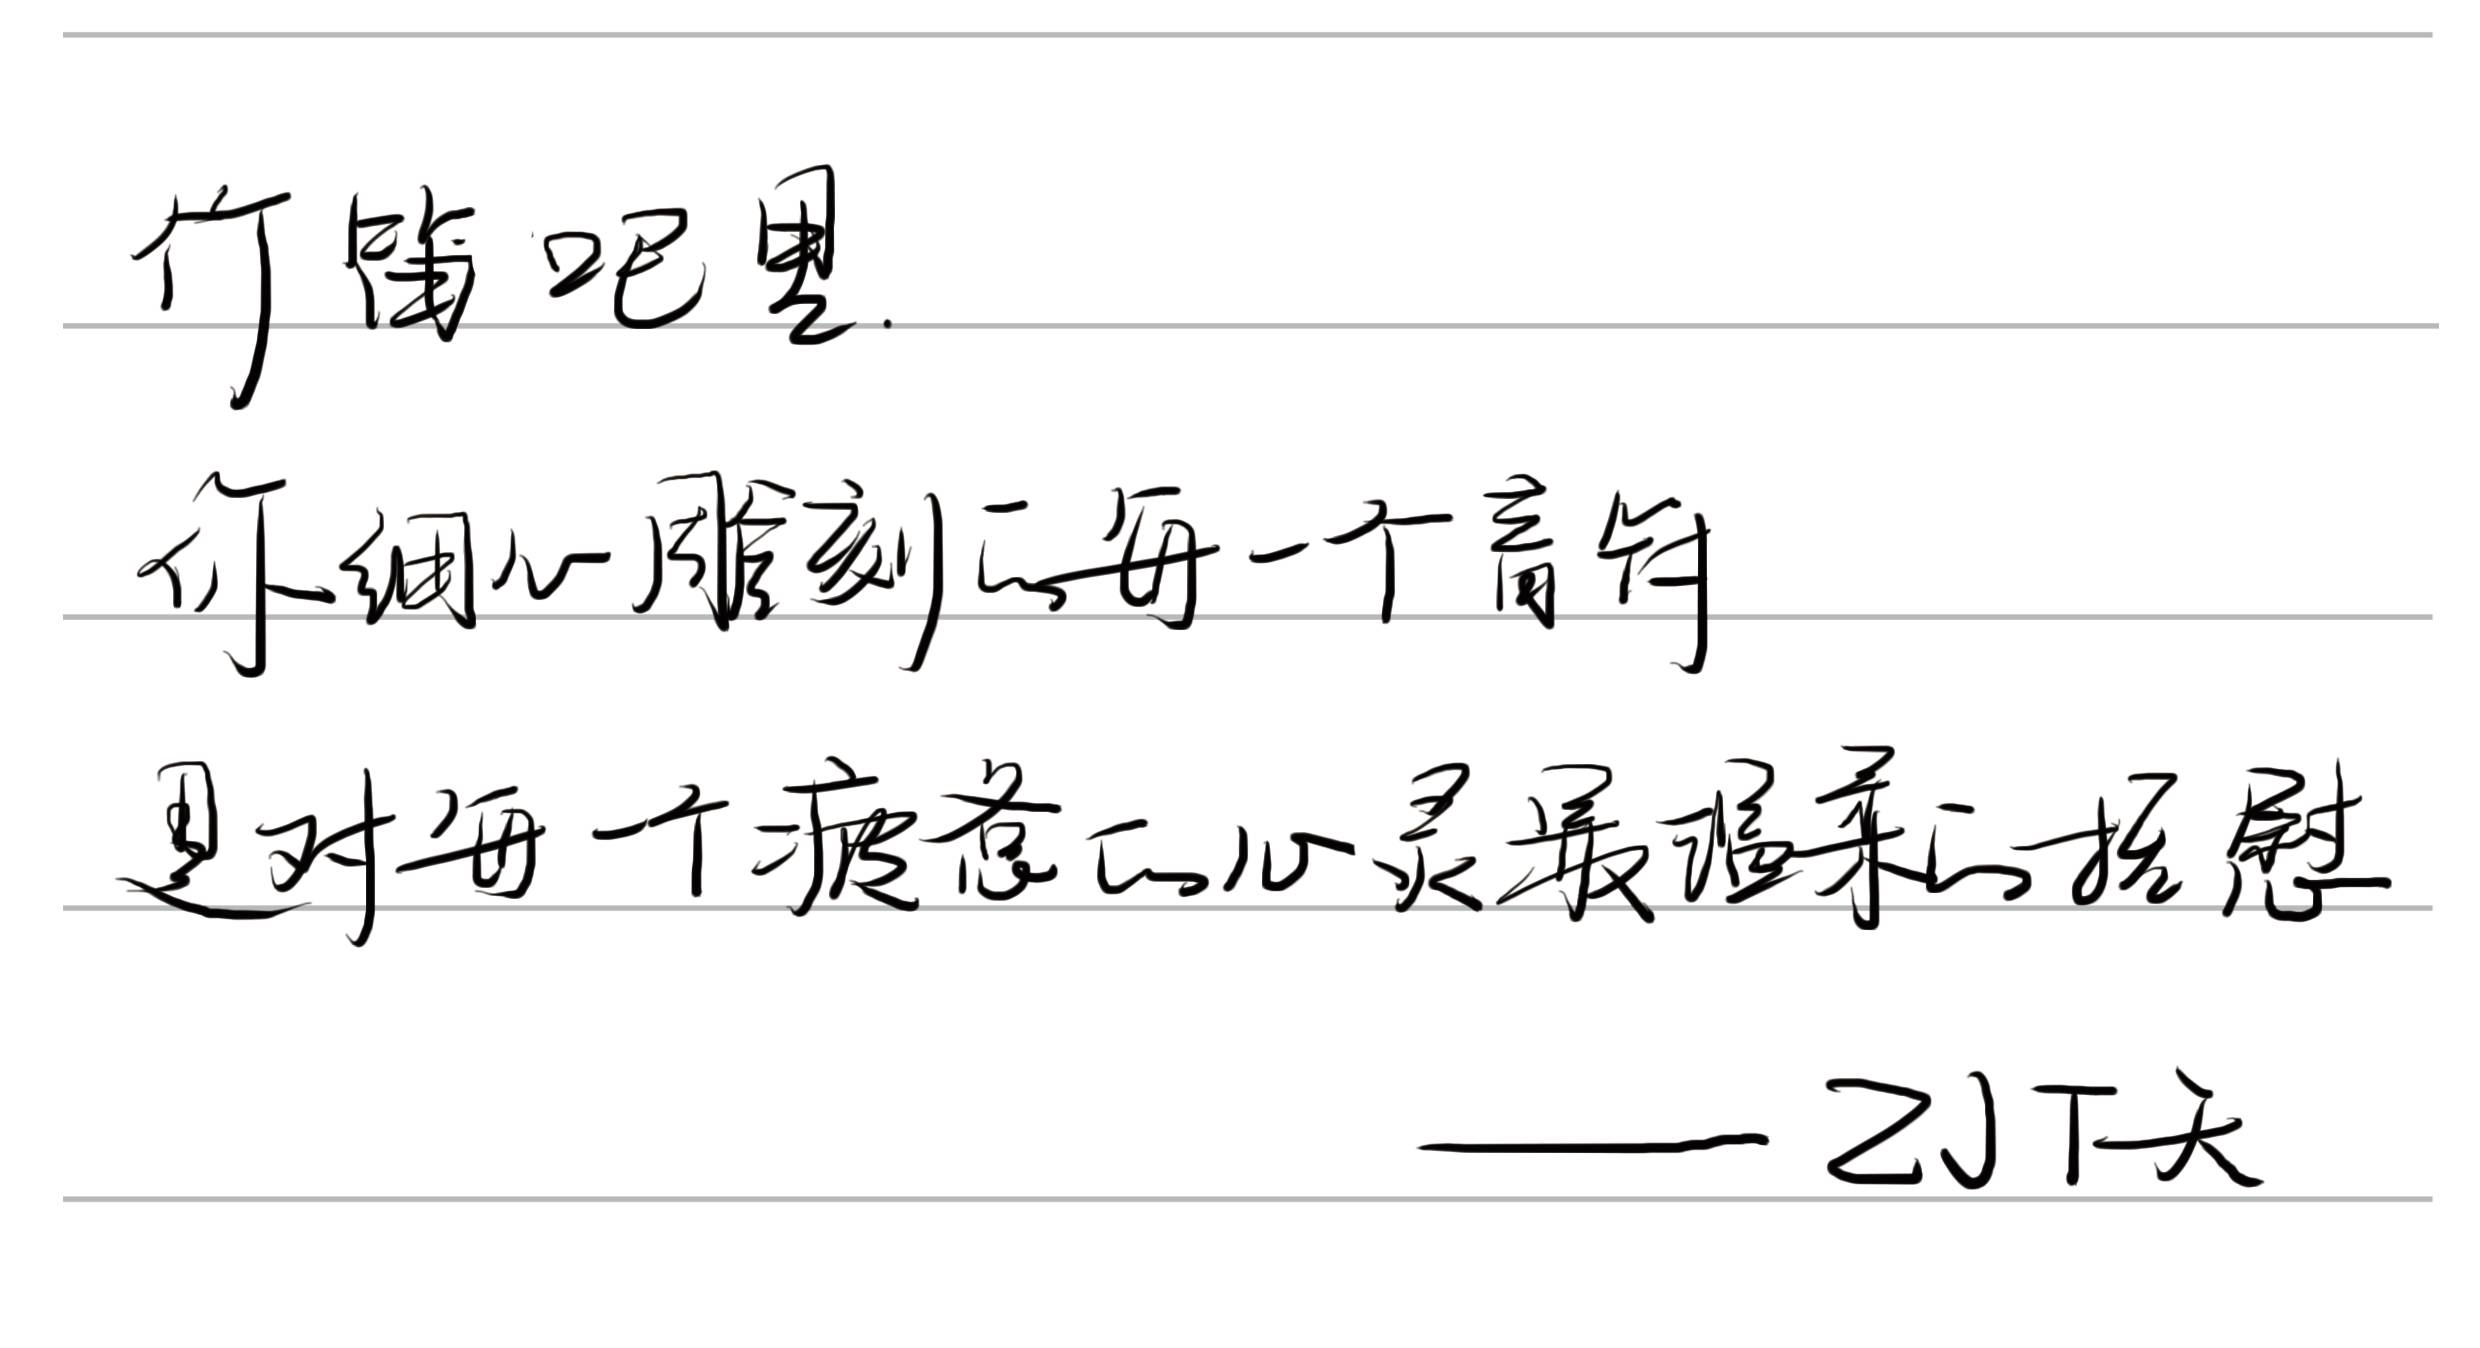 吧里.
你细心雕刻的每一个音符
是对每个疲惫的心灵最温柔的抚慰
——ZJT